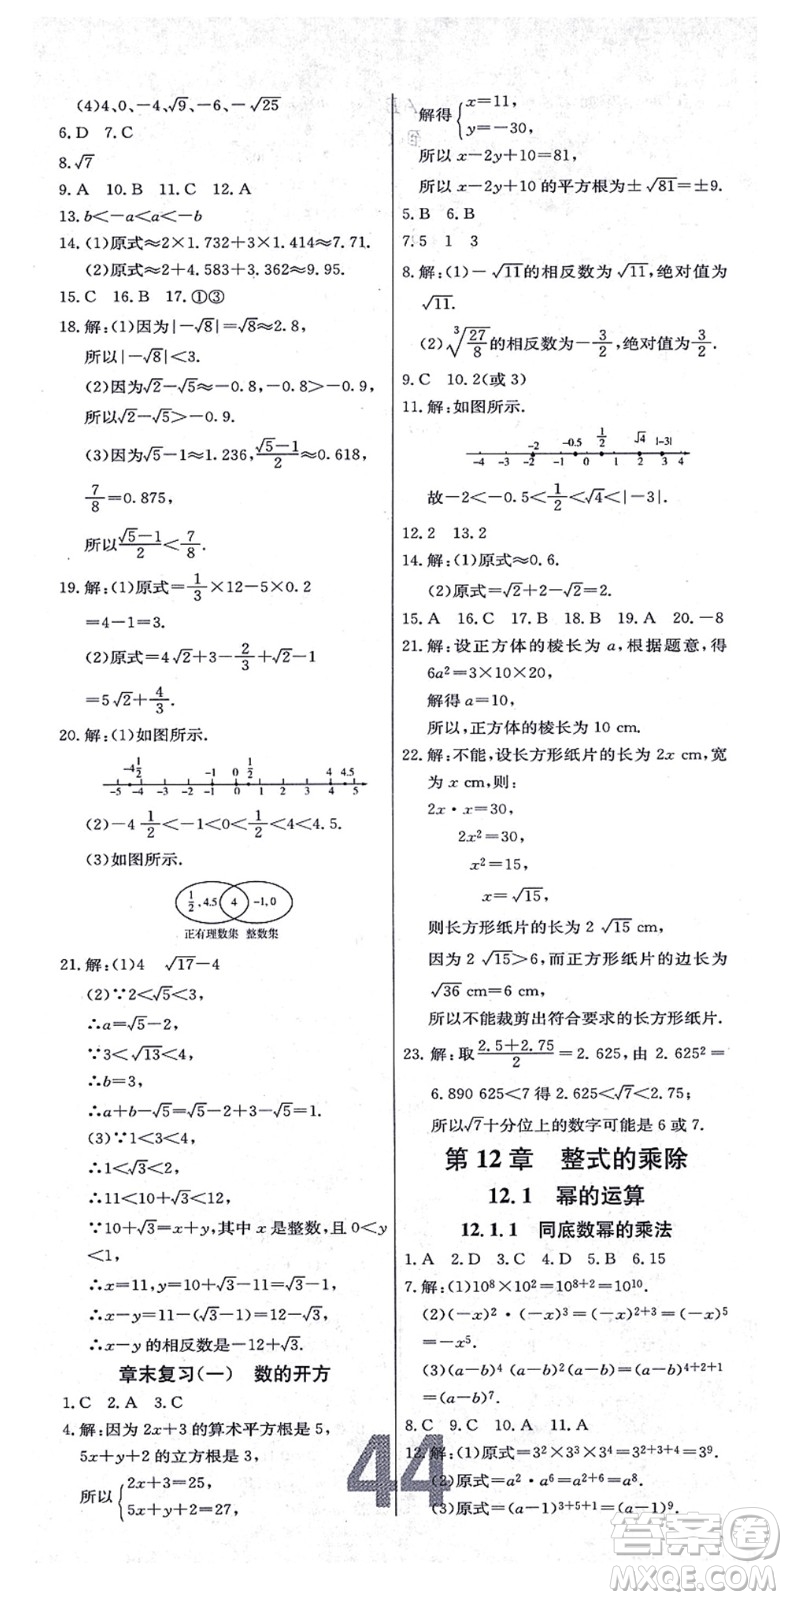 (4)4、0、-4、√9、-6、-√25
6. D　7. C
8. √7
9. A　10. B　11. C　12. A
13. b<-a<a<-b
14. (1)原式≈2×1.732+3×1.414≈7.71.
(2)原式≈2+4.583+3.362≈9.95.
15. C　16. B　17. ①③
18. 解:(1)因为|-√8|=√8≈2.8,
所以|-√8|<3.
(2)因为√2-√5≈-0.8,-0.8>-0.9,
所以√2-√5>-0.9.
(3)因为√5-1≈1.236,(√5-1)/2≈0.618,
7/8=0.875,
所以(√5-1)/2<7/8.
19. 解:(1)原式=1/3×12-5×0.2
=4-1=3.
(2)原式=4√2+3-2/3+√2-1
=5√2+4/3.
20. 解:(1)如图所示.
-4 1/2　-1　0　1/2　4　4.5
-5 -4 -3 -2 -1 0 1 2 3 4 5
(2)-4 1/2<-1<0<1/2<4<4.5.
(3)如图所示.
1/2,4.5　4　-1,0
正有理数集　整数集
21. 解:(1)4　√17-4
(2)∵2<√5<3,
∴a=√5-2,
∵3<√13<4,
∴b=3,
∴a+b-√5=√5-2+3-√5=1.
(3)∵1<3<4,
∴1<√3<2,
∴11<10+√3<12,
∵10+√3=x+y,其中x是整数,且0<y
<1,
∴x=11,y=10+√3-11=√3-1,
∴x-y=11-(√3-1)=12-√3,
∴x-y的相反数是-12+√3.
章末复习(一)　数的开方
1. C　2. A　3. C
4. 解:因为2x+3的算术平方根是5,
5x+y+2的立方根是3,
所以{2x+3=25,
5x+y+2=27,
解得{x=11,
y=-30,
所以x-2y+10=81,
所以x-2y+10的平方根为±√81=±9.
5. B　6. B
7. 5　1　3
8. 解:(1)-√11的相反数为√11,绝对值为
√11.
(2)∛(27/8)的相反数为-3/2,绝对值为3/2.
9. C　10. 2(或3)
11. 解:如图所示.
-2　-0.5　1/2　√4　|-3|
-4 -3 -2 -1 0 1 2 3 4
故-2<-0.5<1/2<√4<|-3|.
12. 2　13. 2
14. 解:(1)原式≈0.6.
(2)原式=√2+2-√2=2.
15. A　16. C　17. B　18. B　19. A　20. -8
21. 解:设正方体的棱长为a,根据题意,得
6a²=3×10×20,
解得a=10,
所以,正方体的棱长为10 cm.
22. 解:不能,设长方形纸片的长为2x cm,宽
为x cm,则:
2x·x=30,
2x²=30,
x²=15,
x=√15,
则长方形纸片的长为2√15 cm,
因为2√15>6,而正方形纸片的边长为
√36 cm=6 cm,
所以不能裁剪出符合要求的长方形纸片.
23. 解:取(2.5+2.75)/2=2.625,由2.625²=
6.890 625<7得2.625<√7<2.75;
所以√7十分位上的数字可能是6或7.
第12章　整式的乘除
12.1　幂的运算
12.1.1　同底数幂的乘法
1. A　2. D　3. C　4. D　5. B　6. 15
7. 解:(1)10⁸×10²=10⁸⁺²=10¹⁰.
(2)(-x)²·(-x)³=(-x)²⁺³=(-x)⁵
=-x⁵.
(3)(a-b)⁴·(a-b)²·(a-b)=(a-b)⁴⁺²⁺¹
=(a-b)⁷.
8. C　9. C　10. A　11. A
12. 解:(1)原式=3²×3³×3⁴=3²⁺³⁺⁴=3⁹.
(2)原式=a²·a⁶=a²⁺⁶=a⁸.
(3)原式=(a-1)³⁺⁵⁺¹=(a-1)⁹.
44
答案卷
MXQE.COM